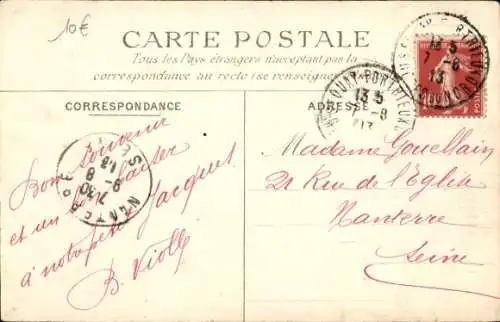 10€
CARTE POSTALE
Tous les Pays étrangers n'acceptant pas la
correspondance au recto (se renseigner
CORRESPONDANCE
ADRESSE
Bon souvenir
et un bon baiser
à notre petit Jacques
B. Violle
Madame
21 Rue de l'Eglise
Nanterre
Seine
PORTRIEUX
13 5
7 - 8
13
13 5
7 - 8
13
NANTERRE
SEINE
7 30
9 - 8
13